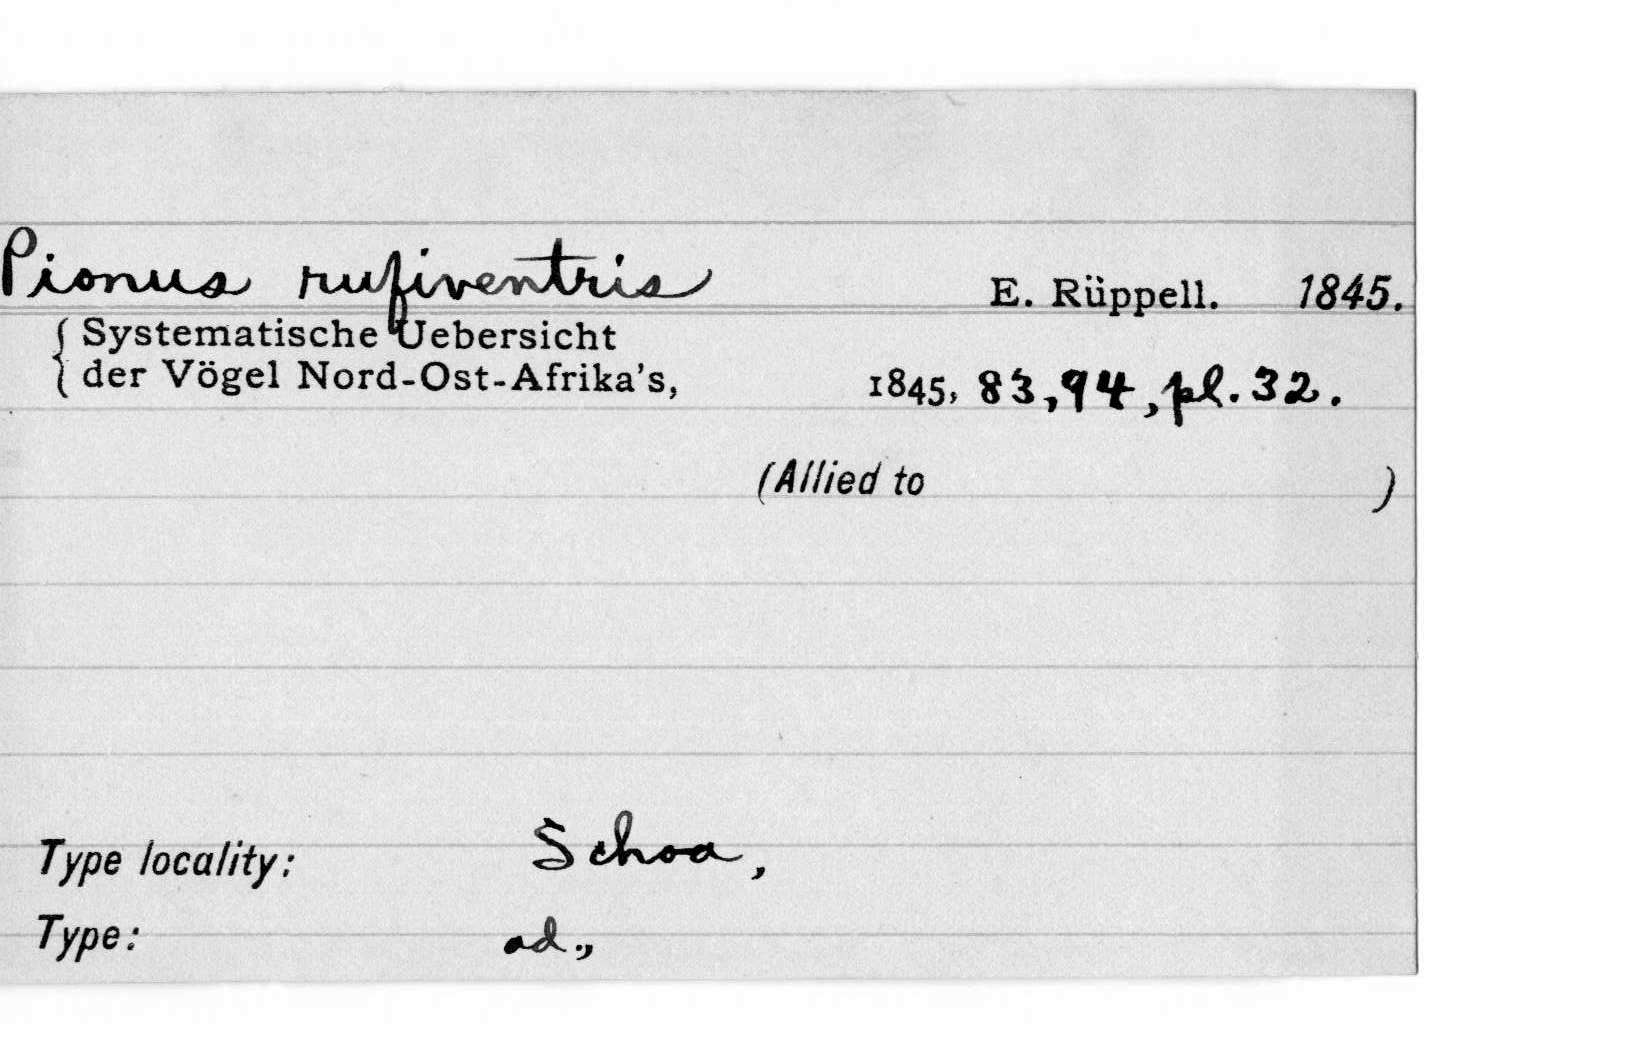 Pionus rufiventris E. Rüppell. 1845.
{ Systematische Uebersicht
der Vögel Nord-Ost-Afrika's, 1845, 83,94, pl. 32.
(Allied to )
Type locality: Schoa,
Type: ad.,